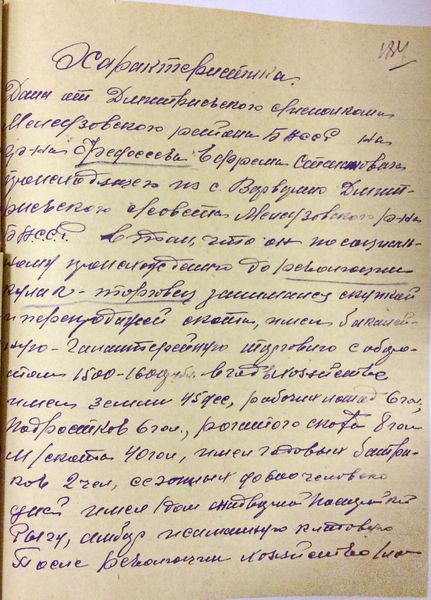 184
Характеристика.
Дана от Дмитриевского сельсовета
Мелеузовского района БАССР на
гр-на Федосеева Ефрема Степановича
происходящего из с. Дмит-
риевского с/совета Мелеузовского р-на
БАССР. в том, что он по социаль-
ному происхождению до революции
кулак - торговец занимался скупкой
и перепродажей скота, имел бакалей-
ную - галантерейную торговлю с оборо-
том 1500-1600 руб. в год в хозяйстве
имел земли 45 дес, рабочих лошад 6 гол,
подростков 6 гол., рогатого скота 8 гол
м/скота 40 гол, имел годовых батра-
ков 2 чел, сезонных до человеко
дней имел дом
амбар и каменную кладовую
После революции хозяйство